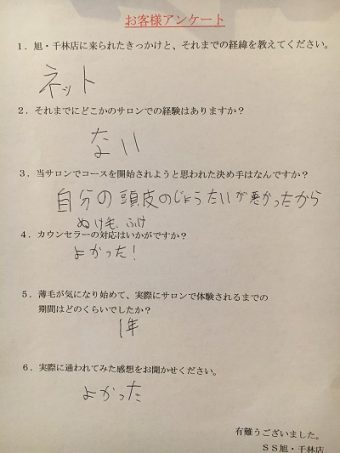 お客様アンケート
１．旭・千林店に来られたきっかけと、それまでの経緯を教えてください。
ネット
２．それまでにどこかのサロンでの経験はありますか？
ない
３．当サロンでコースを開始されようと思われた決め手はなんですか？
自分の頭皮のじょうたいが悪かったから
ぬけ毛、ふけ
４．カウンセラーの対応はいかがですか？
よかった！
５．薄毛が気になり始めて、実際にサロンで体験されるまでの
期間はどのくらいでしたか？
1年
６．実際に通われてみた感想をお聞かせください。
よかった
有難うございました。
ＳＳ旭・千林店